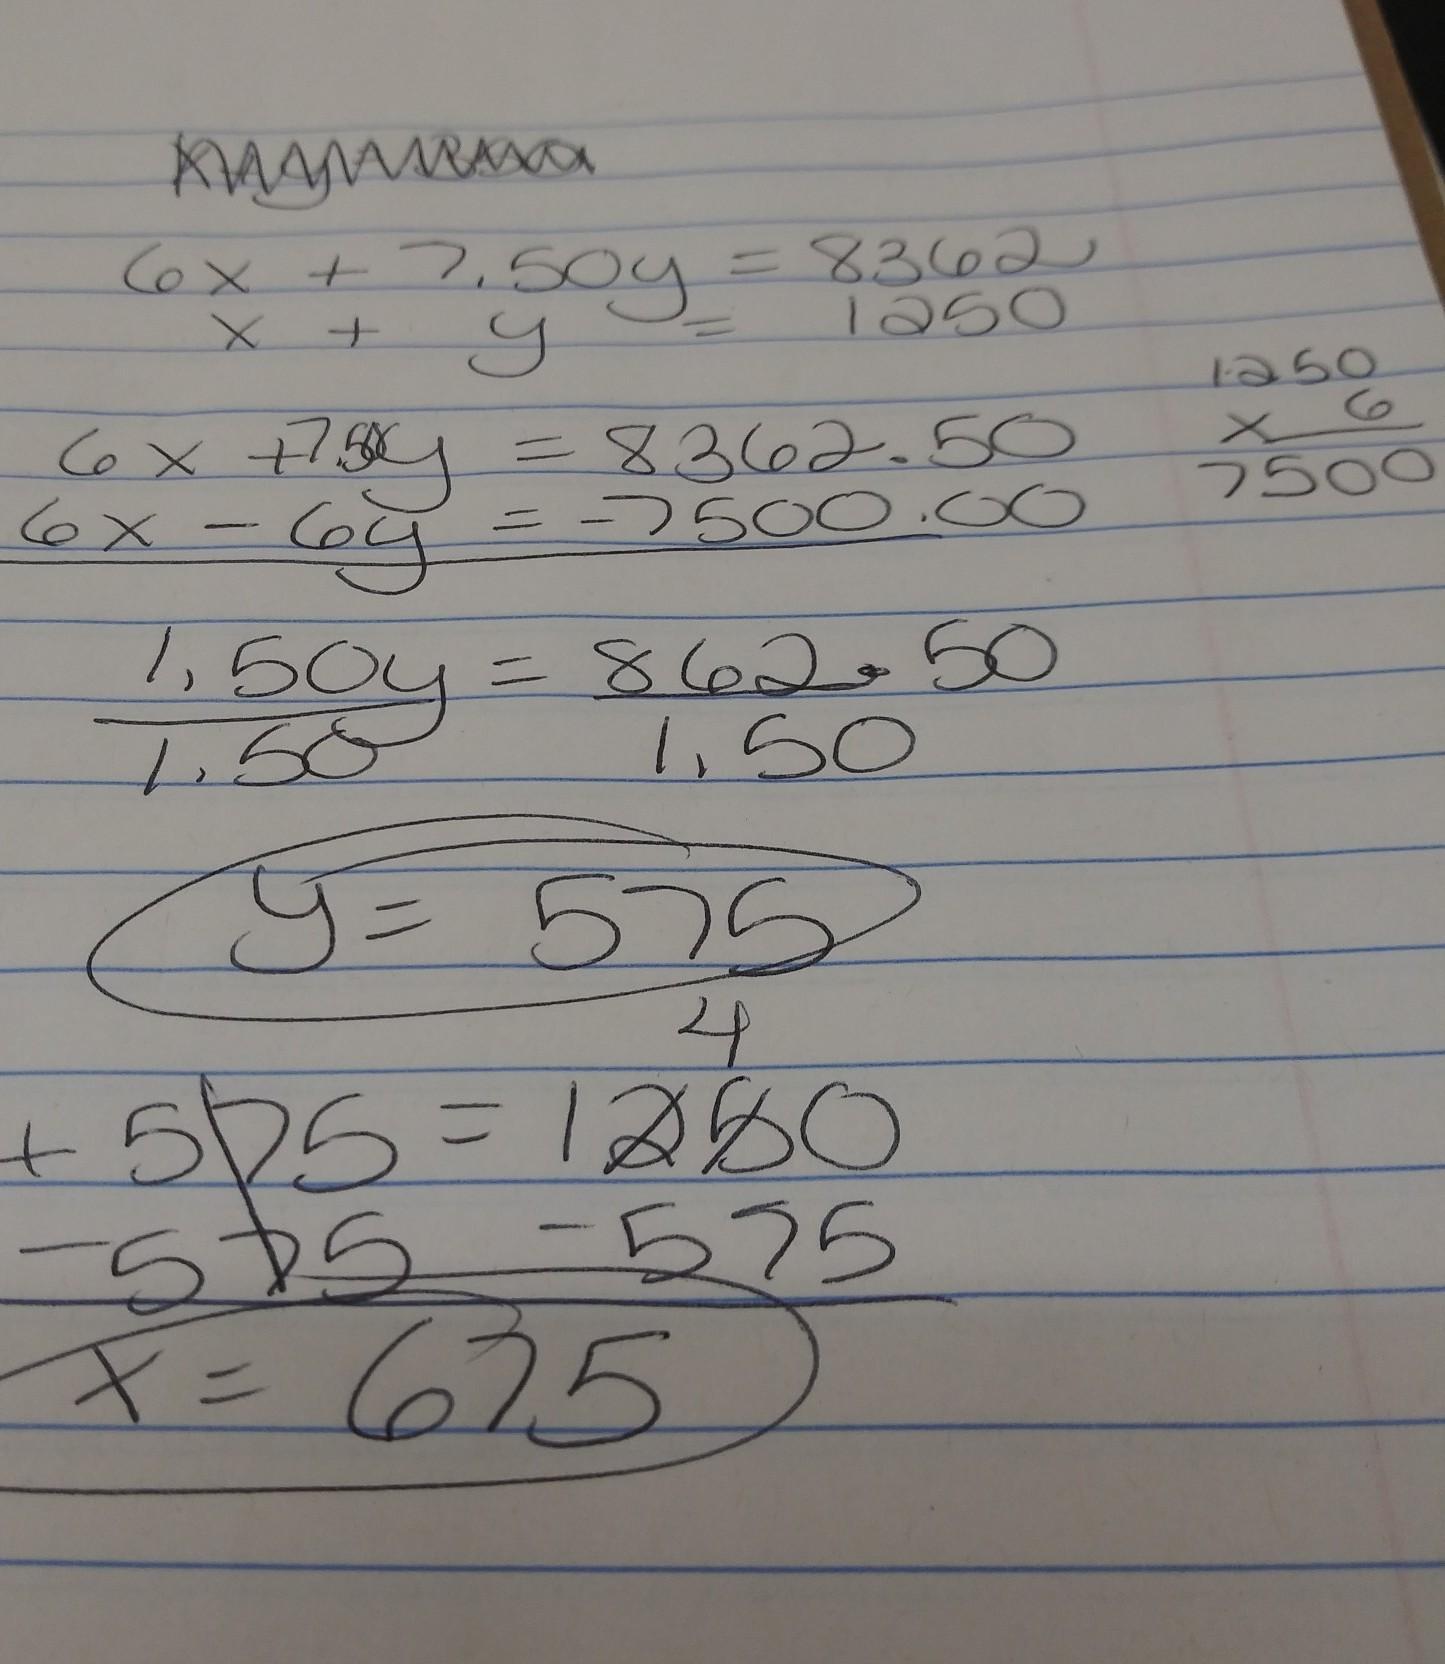 6x + 7.50y = 8362
x + y = 1250
1250
x 6
7500
6x +7.50y = 8362.50
6x - 6y = -7500.00
1.50y = 862.50
1.50 1.50
y = 575
4
+ 575 = 1250
-575 -575
x = 675